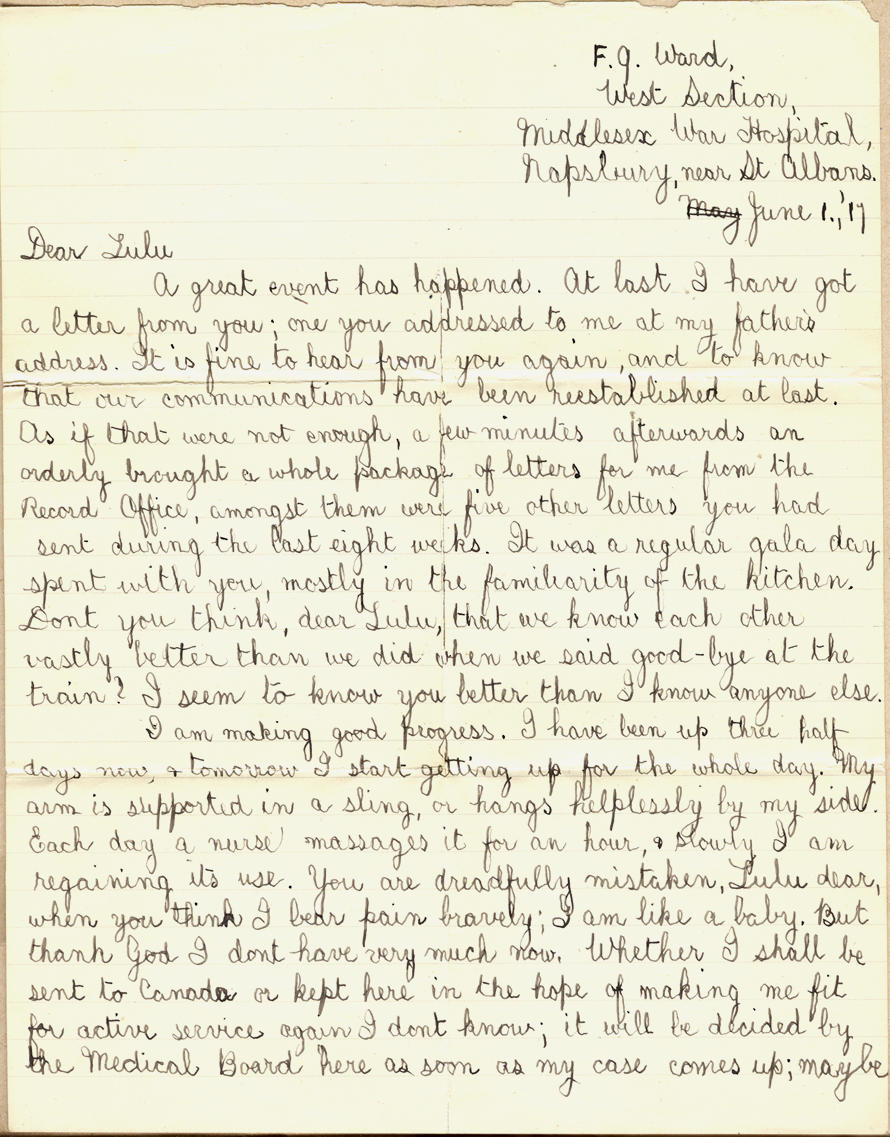 F.9. Ward,
West Section,
Middlesex War Hospital,
Napsbury, near St Albans.
May June 1.,'17
Dear Lulu
A great event has happened. At last I have got
a letter from you; one you addressed to me at my father's
address. It is fine to hear from you again, and to know
that our communications have been reestablished at last.
As if that were not enough, a few minutes afterwards an
orderly brought a whole package of letters for me from the
Record Office, amongst them were five other letters you had
sent during the last eight weeks. It was a regular gala day
spent with you, mostly in the familiarity of the kitchen.
Dont you think, dear Lulu, that we know each other
vastly better than we did when we said good-bye at the
train? I seem to know you better than I know anyone else.
I am making good progress. I have been up three half
days now, & tomorrow I start getting up for the whole day. My
arm is supported in a sling, or hangs helplessly by my side.
Each day a nurse massages it for an hour, & slowly I am
regaining its use. You are dreadfully mistaken, Lulu dear,
when you think I bear pain bravely; I am like a baby. But
thank God I dont have very much now. Whether I shall be
sent to Canada or kept here in the hope of making me fit
for active service again I dont know; it will be decided by
the Medical Board here as soon as my case comes up; maybe